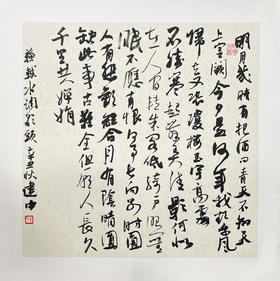 明月幾時有把酒问青天不知天
上宫阙今夕是何年我欲乘风
歸去又恐瓊樓玉宇高處
不勝寒起舞弄清影何似
在人间轉朱阁低绮户照無
眠不應有恨何事长向别时圆
人有悲歡離合月有陰晴圆
缺此事古難全但願人長久
千里共嬋娟
蘇軾水调歌頭辛丑秋建中